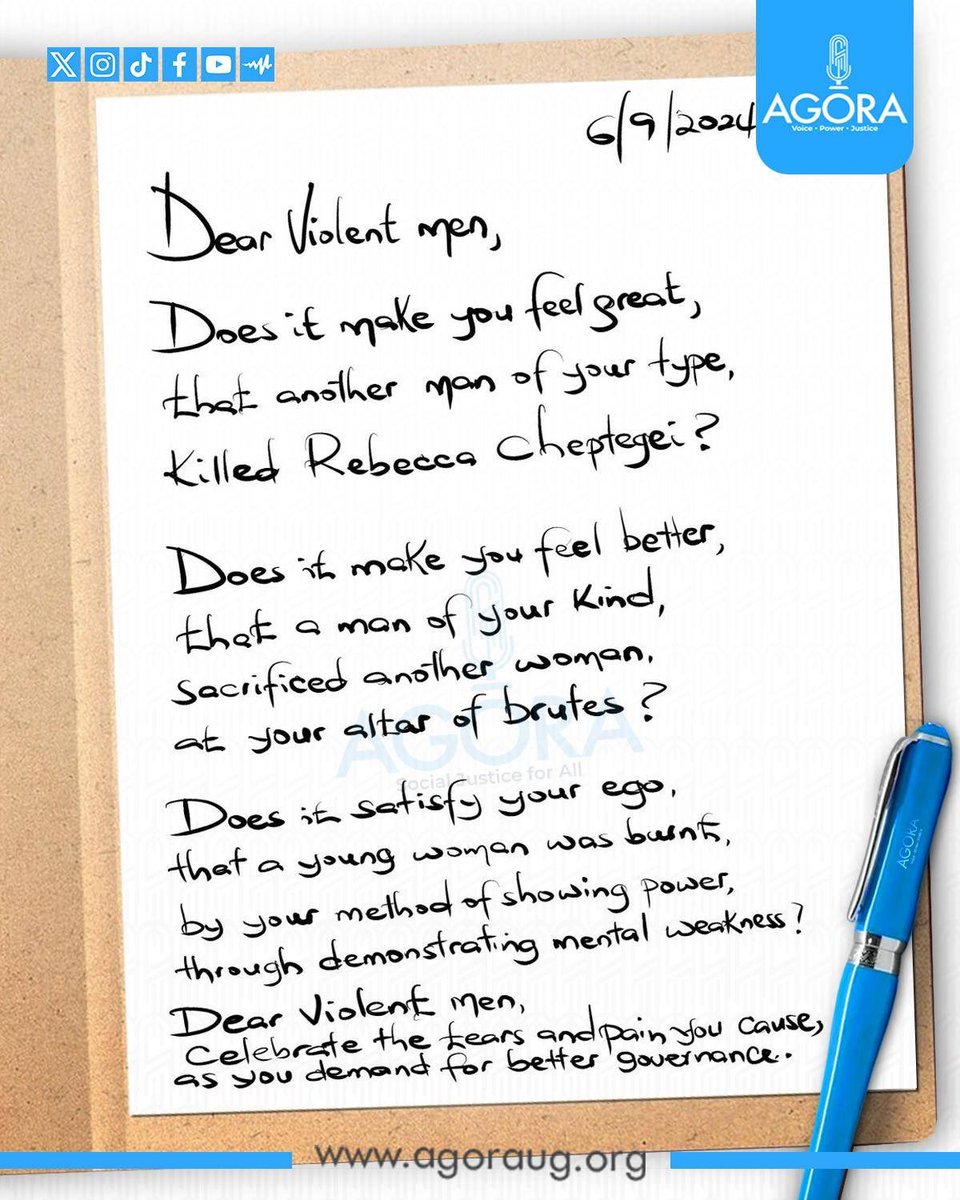 AGORA
Voice • Power • Justice
6/9/2024
Dear Violent men,
Does it make you feel great,
that another man of your type,
Killed Rebecca Cheptegei?
Does it make you feel better,
that a man of your kind,
sacrificed another woman.
at your altar of brutes?
AGORA
Social Justice for All
Does it satisfy your ego,
that a young woman was burnt,
by your method of showing power,
through demonstrating mental weakness?
Dear Violent men,
Celebrate the tears and pain you cause,
as you demand for better governance..
AGORA
www.agoraug.org